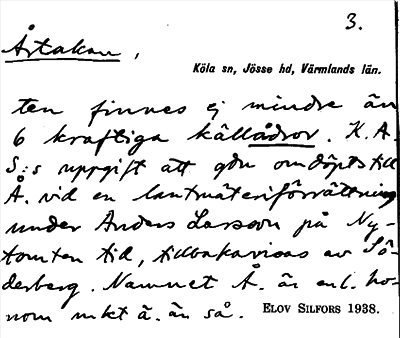 3.
Årtakan,
Köla sn, Jösse hd, Värmlands län.
ten finnes ej mindre än
6 kraftiga källådror. K.A.
S:s uppgift att gdn omdöpts till
Å. vid en lantmäteriförrättning
under Anders Larsson på Ny-
tomten tid, tillbakavisas av Sö-
derberg. Namnet Å. är enl. ho-
nom mkt ä. än så.
ELOV SILFORS 1938.